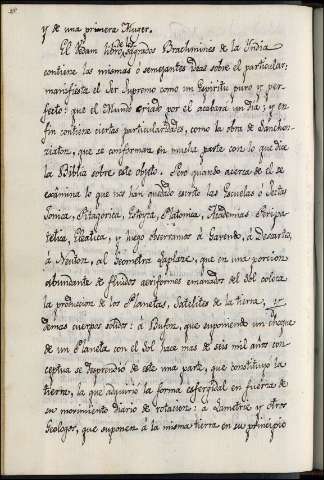 y de una primera Muger.
El Vedam libro de los sagrados Brachmines de la India
contiene las mismas ó semejantes ideas sobre el particular:
manifiesta el Ser Supremo como un Espiritu puro y per-
fecto: que el Mundo criado por el acabara un dia; y en
fin contiene ciertas particularidades, como la obra de Sanchon-
riaton, que se conforman en mucha parte con lo que dice
la Biblia sobre este objeto. Pero quando acerca de el se
examina lo que nos han quedado escrito las Escuelas ó Sectas
Jonica, Pitagorica, Estoyca, Platonica, Academias Peripa-
tetica, Eleatica, y luego observamos á Garendo, á Descartes,
á Neuton, al Geometra Laplaze, que en una porcion
abundante de fluidos aeriformes emanados del Sol coloca
la produccion de los Planetas, Satelites de la tierra, y
demas cuerpos solidos: á Bufon, que suponiendo un choque
de un Planeta con el Sol hace mas de seis mil años con
ceptua se desprendio de este una parte, que constituyó la
tierra, la que adquirió la forma esferoidal en fuerza de
su movimiento diario de rotacion: á Lametrie y otros
Geologos, que suponen á la misma tierra en su principio